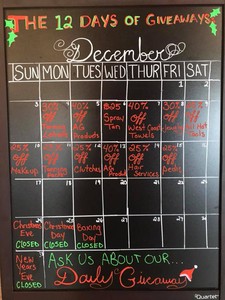 THE 12 DAYS OF GIVEAWAYS
December
SUN MON TUES WED THUR FRI SAT
1 2
3
40% off AG Products
$25 Spray Tan
40% off West Coast Towels
off Hot Tools
25% off Makeup
off
25% off Clutches
off AG Hair Services
25% off
Christmas Eve CLOSED
Christmas Day CLOSED
Boxing Day CLOSED
New Years Eve CLOSED
ASK US ABOUT OUR...
Daily Giveaway
Quartet